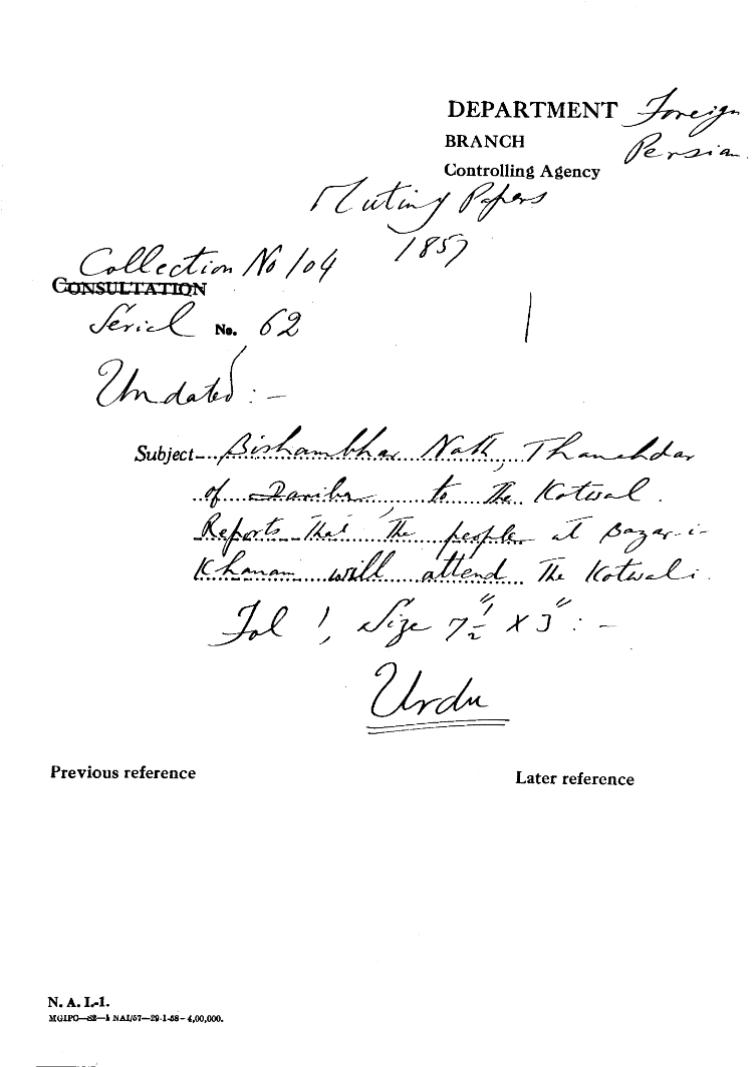 DEPARTMENT Foreign
BRANCH Persian
Controlling Agency
Mutiny Papers
1857
Collection No 104
CONSULTATION
Serial No. 62
Undated :-
Subject Bishambhar Nath, Thanehdar
of Dariba, to the Kotwal.
Reports that the people at Bazar-i-
Khanam will attend the Kotwali.
Fol 1, Size 7½" X 3" : -
Urdu
Previous reference Later reference
N. A. I.-1.
MGIPC—S2—1 NAI/57—29-1-58—4,00,000.